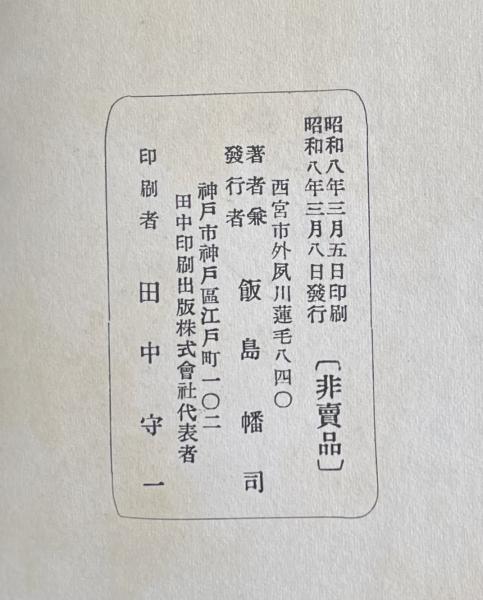 昭和八年三月五日印刷
昭和八年三月八日發行
〔非賣品〕
西宮市外夙川蓮毛八四〇
著者兼
發行者
飯島幡司
神戸市神戸區江戸町一〇二
田中印刷出版株式會社代表者
印刷者 田中守一